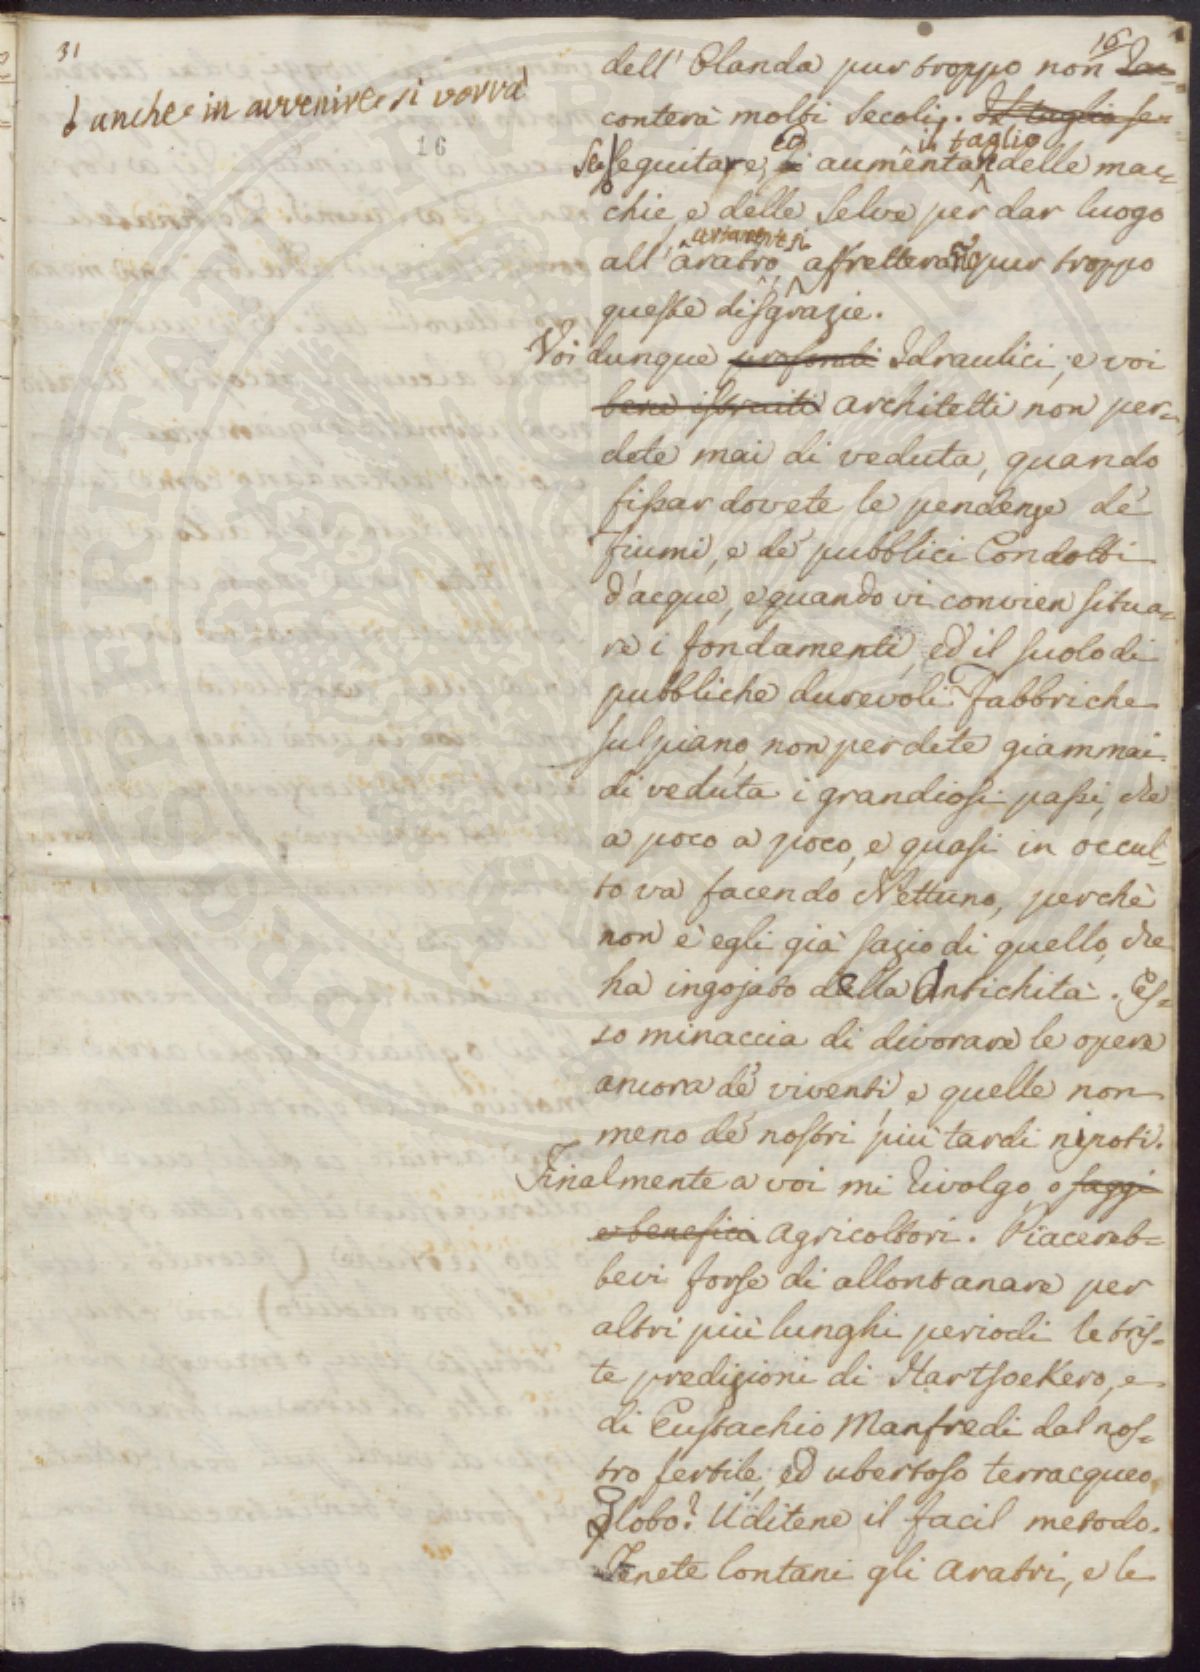 31
16
♂ anche in avvenire si vorrà
16
dell'Olanda pur troppo non rac=
conterà molti secoli. Il taglio se=
Se seguitare, ed aumentar il taglio delle mac=
chie, e delle selve per dar luogo
all'aratro, certamente si affretterano pur troppo
queste disgrazie.
Voi dunque profondi Idraulici, e voi
bene istruiti architetti non per=
dete mai di veduta, quando
fissar dovete le pendenze de'
fiumi, e de' pubblici Condotti
d'acque, e quando vi convien situa=
re i fondamenti, ed il suolo di
pubbliche durevoli Fabbriche
sul piano, non perdete giammai
di veduta i grandiosi passi, che
a poco a poco, e quasi in occul=
to va facendo Nettuno, perchè
non è egli già sazio di quello, che
ha ingojato della Antichità. Es=
so minaccia di divorare le opere
ancora de' viventi, e quelle non
meno de' nostri più tardi nipoti.
Finalmente a voi mi rivolgo, o saggi
e benefici agricoltori. Piacereb=
bevi forse di allontanare per
altri più lunghi periodi le tris=
te predizioni di Hartsoekero, e
di Eustachio Manfredi dal nos=
tro fertile, ed ubertoso terracqueo
globo? Uditene il facil metodo.
Tenete lontani gli aratri, e le
PROSPERITATI PUBLICAE